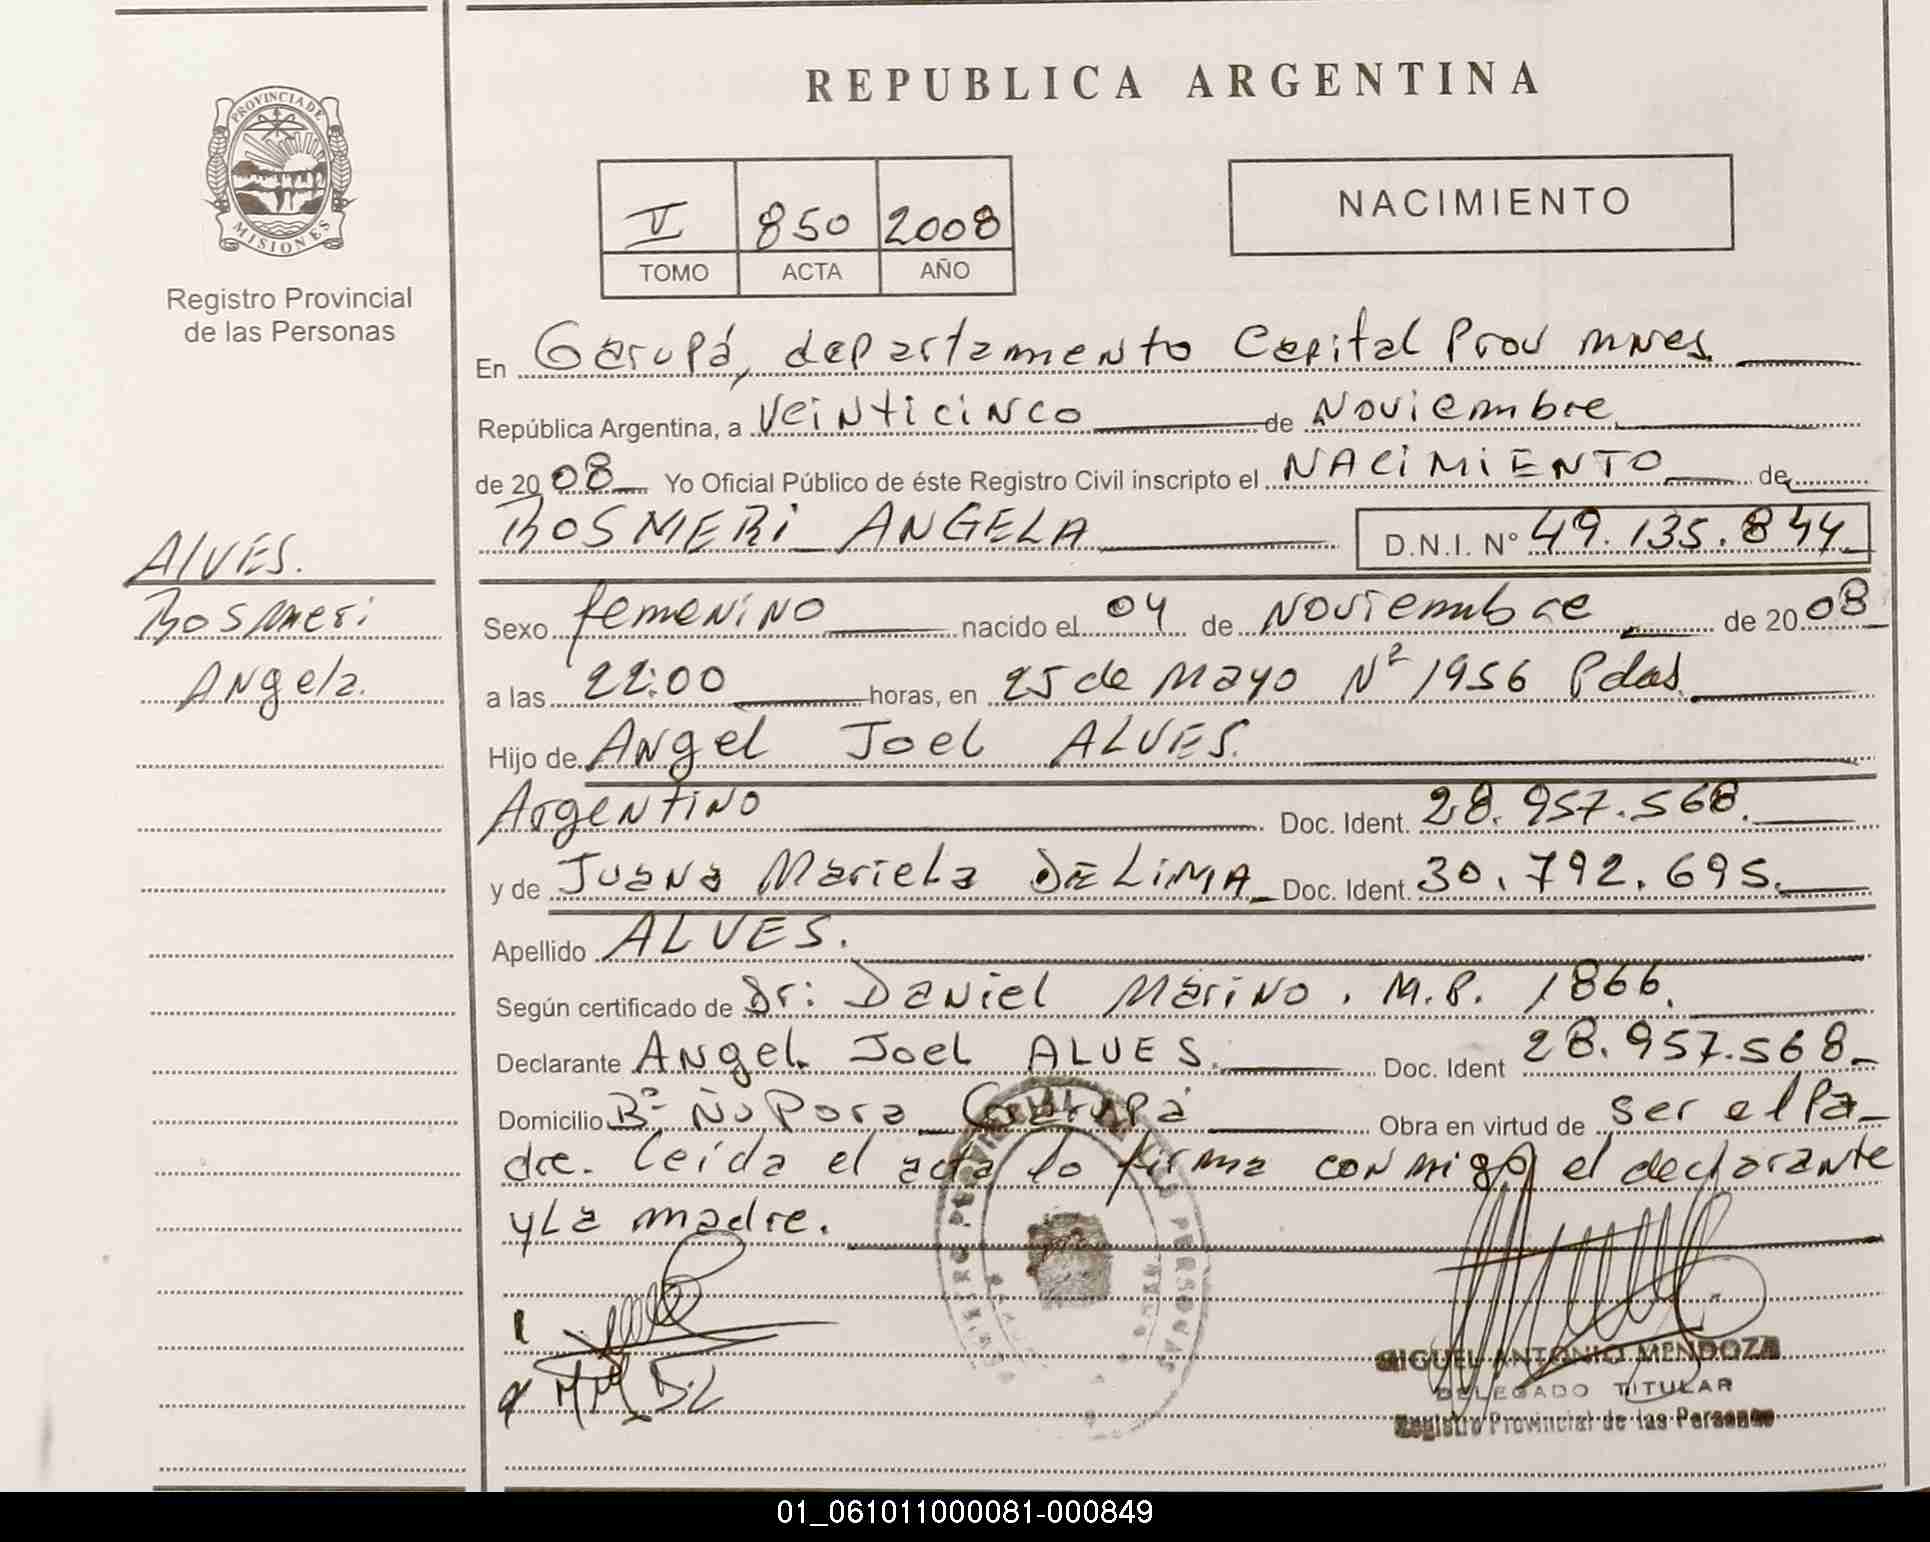 REPUBLICA ARGENTINA
PROVINCIA DE
MISIONES
Registro Provincial
de las Personas
V 850 2008
TOMO ACTA AÑO
NACIMIENTO
En Garupá, departamento Capital Prov mnes
República Argentina, a Veinticinco de Noviembre
de 2008 Yo Oficial Público de éste Registro Civil inscripto el NACIMIENTO de
ROSMERI ANGELA D.N.I. N° 49.135.844
ALVES.
Rosmeri
Angela.
Sexo femenino nacido el 04 de Noviembre de 2008
a las 22:00 horas, en 25 de Mayo Nº 1956 Pdas.
Hijo de Angel Joel ALVES.
Argentino Doc. Ident. 28.957.568.
y de Juana Mariela DE LIMA Doc. Ident. 30.792.695.
Apellido ALVES.
Según certificado de Dr: Daniel Marino. M.P. 1866.
Declarante Angel Joel ALVES. Doc. Ident 28.957.568
Domicilio Bº Ñu Pora Garupá Obra en virtud de ser el Pa_
dre. leida el acta lo firma conmigo el declarante
y La madre.
MIGUEL ANTONIO MENDOZA
DELEGADO TITULAR
Registro Provincial de las Personas
01_061011000081-000849